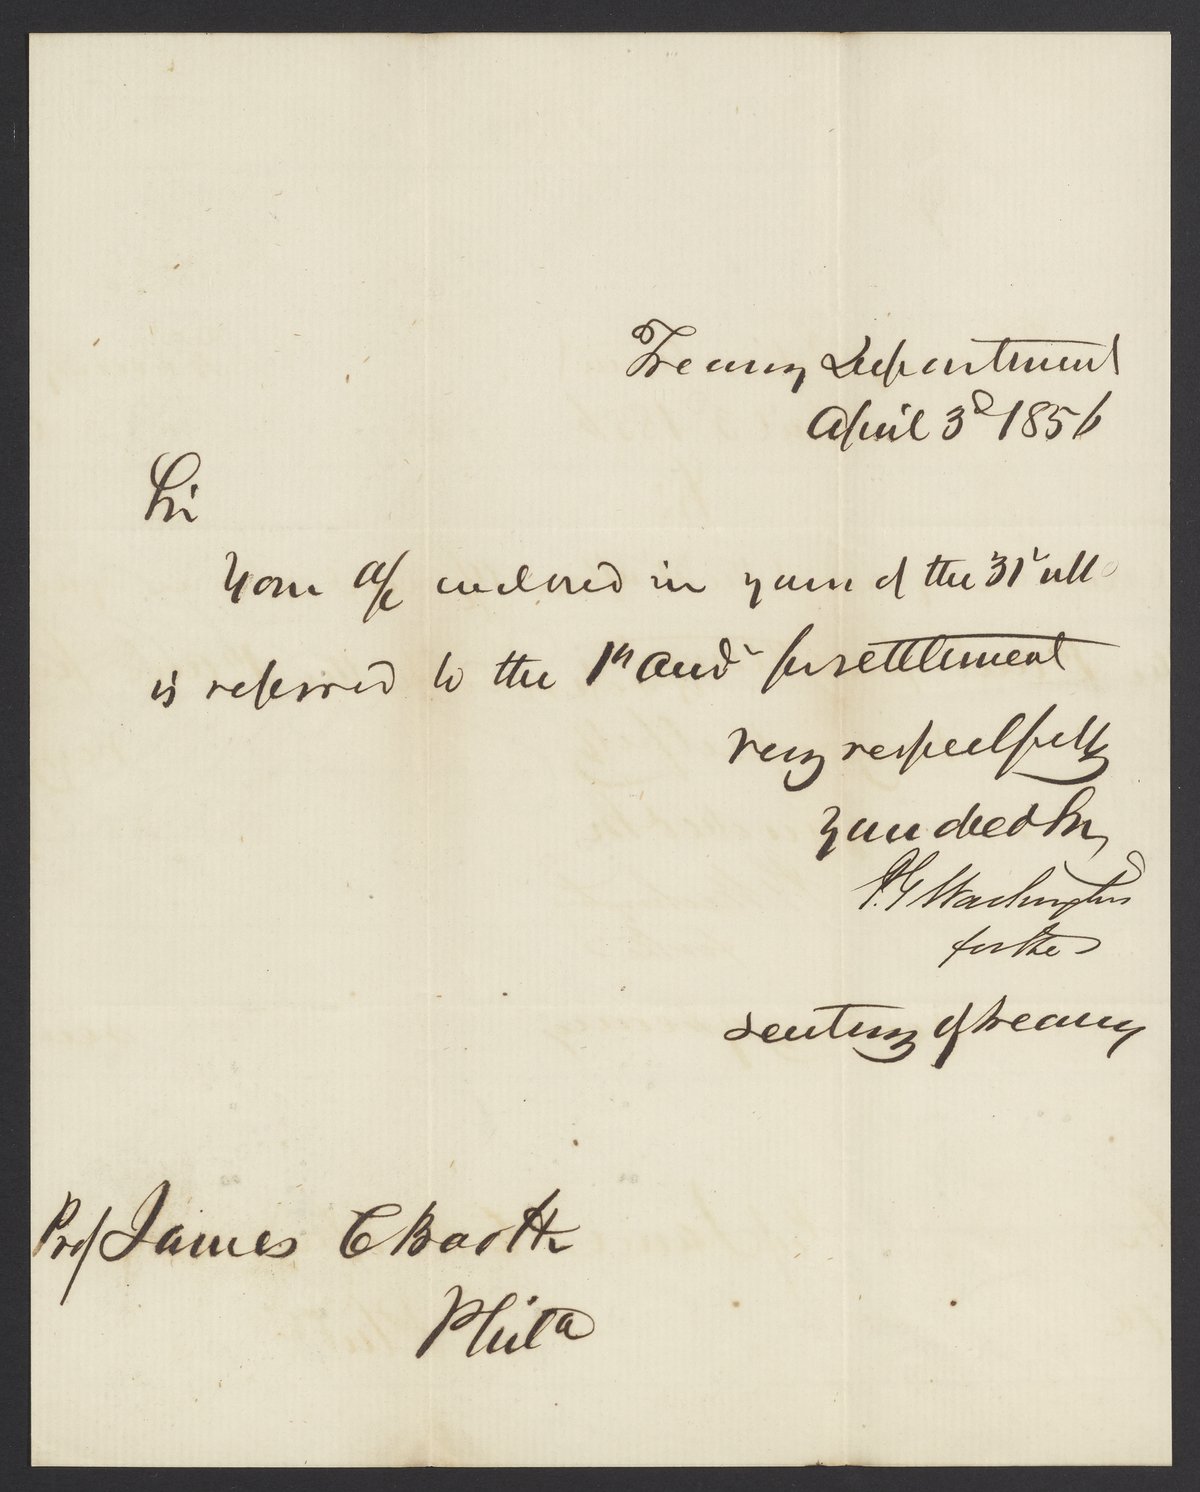 Treasury Department
April 3d 1856
Sir
Your a/c enclosed in yours of the 31st ulto
is referred to the 1st Audr for settlement
very respectfully
your obed Sr,
P.G Washington
for the
Secretary of Treasury
Prof James C Booth
Phila